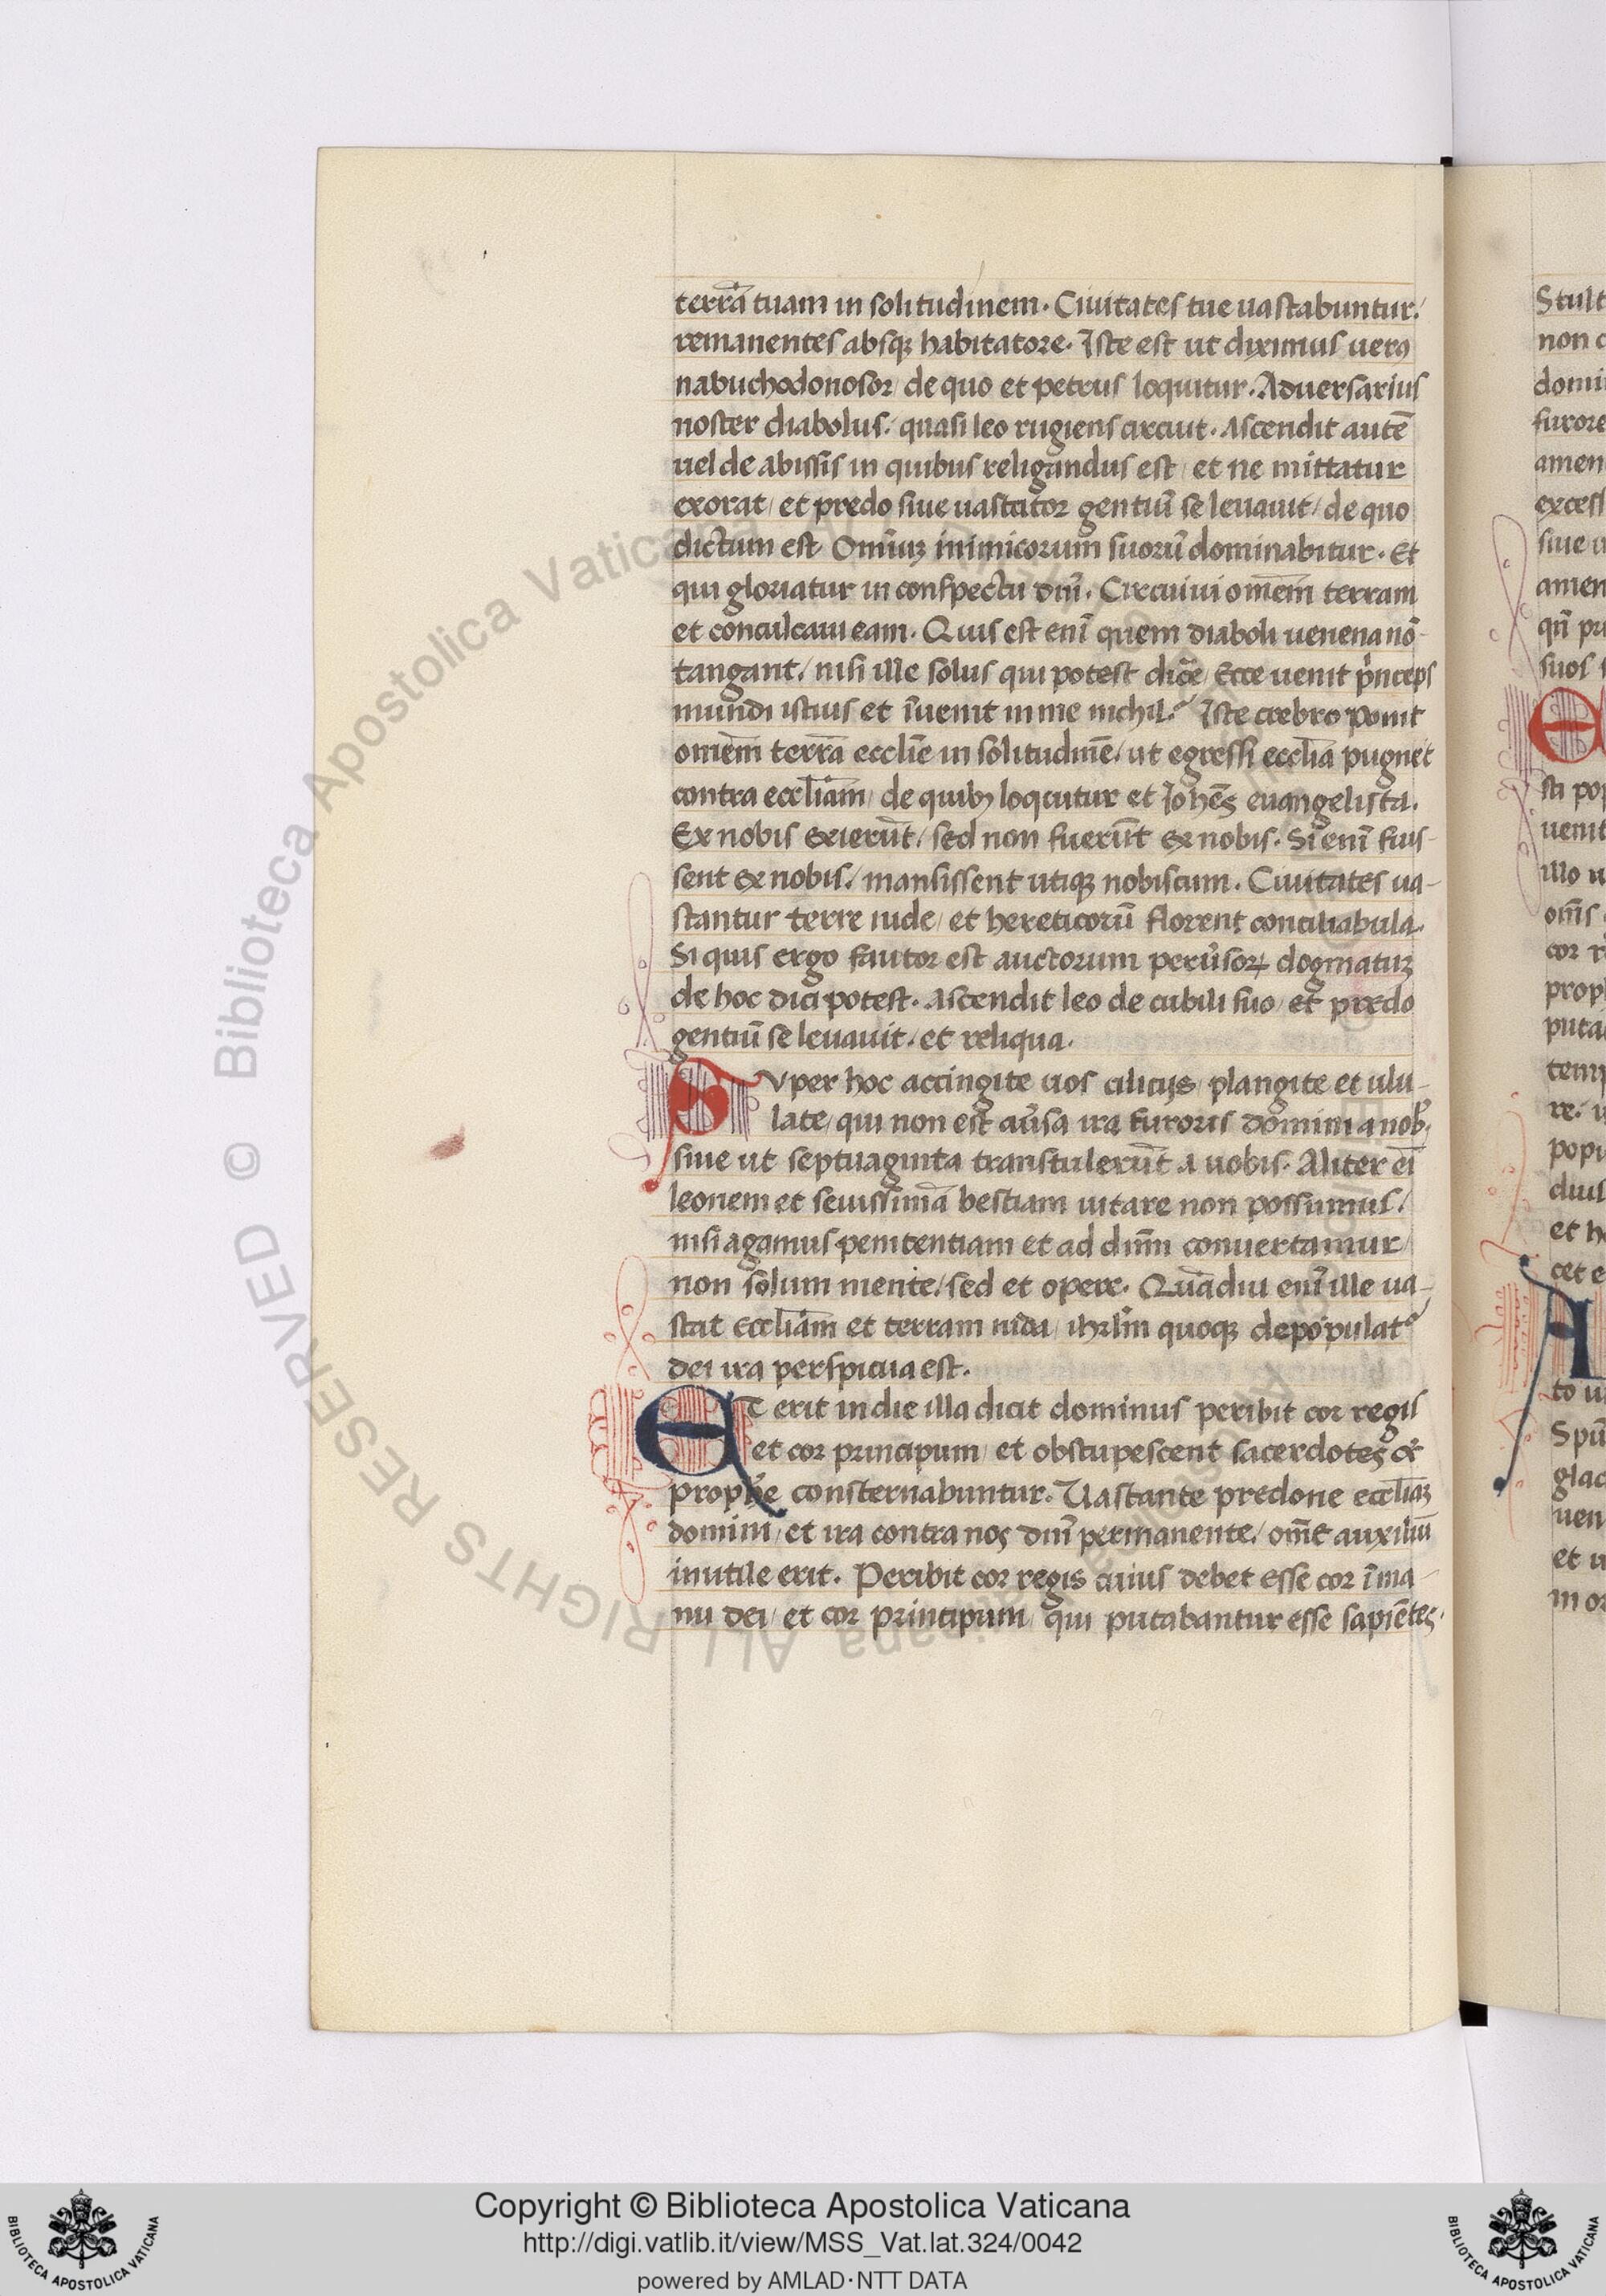 terrā tuam in solitudinem. Ciuitates tue uastabuntur/
remanentes absqꝫ habitatore. Iste est ut diximus uerꝯ
nabuchodonosor/ de quo et petrus loquitur. Aduersarius
noster diabolus/ quasi leo rugiens circuit. Ascendit autē
uel de abissis in quibus religandus est/ et ne mittatur
exorat/ et predo siue uastator gentiū se leuauit/ de quo
dictum est/ Omīuꝫ inimicorum suorū dominabitur. Et
qui gloriatur in conspectu dn̄i. Circuiui om̄em terram
et conculcaui eam. Quis est eni̅ quem diaboli uenena nō
tangant/ nisi ille solus qui potest dicẽ/ Ecce uenit pͥnceps
mundi istius et īuenit in me nichil. Iste crebro ponit
om̄em terrā eccl̄ie in solitudinē/ ut egressi eccl̄ia pugnēt
contra eccl̄iam/ de quibꝫ loquitur et Ioh̄es euangelista.
Ex nobis exierūt/ sed non fuerūt ex nobis. Si eni̅ fuis-
sent ex nobis/ mansissent utiqꝫ nobiscum. Ciuitates ua-
stantur terre iude/ et hereticorū florent conciliabula.
Si quis ergo fautor est auctorum peruͤsoꝝ dogmatuꝫ
de hoc dici potest. Ascendit leo de cubili suo/ et predo
gentiū se leuauit/ et reliqua.
Super hoc accingite uos cilicijs/ plangite et ulu-
late/ qui non est au͛sa ira furoris domini a nob̾/
siue ut septuaginta transtulerūt a uobis. Aliter ei̅
leonem et seuissimā bestiam uitare non possumus/
nisi agamus penitentiam et ad dn̄m conuertamur/
non solum mente/ sed et opere. Quādiu eni̅ ille ua-
stat Eccl̄iam et terram iuda/ ihrl̄m quoqꝫ depopulat᷑
dei ira perspicua est.
ET erit in die illa dicit dominus peribit cor regis
et cor principum/ et obstupescent sacerdotes &
prophe̅ consternabuntur. Uastante predone eccl̄iaꝫ
domini/ et ira contra nos dn̄i permanente/ om̄e auxiliū
inutile erit. Peribit cor regis cuius debet esse cor ī ma-
nu dei/ et cor principum/ qui putabantur esse sapiētes.
Stult
non
domi
furore
amen
excess
siue
amen
qn̄
suos
E
sti pop
uenit
illo
om̄s
cor
prop
puta
temp
re
popu
et
cet e
A
to
Spū
glad
uen
et
in or
© Biblioteca Apostolica Vaticana ALL RIGHTS RESERVED
Copyright © Biblioteca Apostolica Vaticana
http://digi.vatlib.it/view/MSS_Vat.lat.324/0042
powered by AMLAD·NTT DATA
BIBLIOTECA APOSTOLICA VATICANA
BIBLIOTECA APOSTOLICA VATICANA